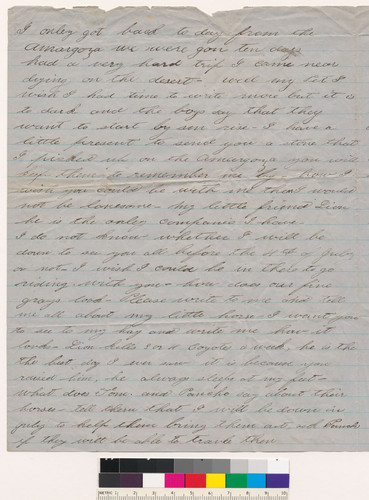 I onley got back to day from the
Amargoza we were gon ten days
had a very hard trip I came near
dying on the desert - well my pet I
wish I had time to write more but it is
to dark and the boys say that they
want to start by sun rise - I have a
little present to send you a stone that
I picked up on the Amargoza you will
keep them to remember me by - Bon I
wish you could be with me then I would
not be lonesome - my little friend Dion
he is the onley companie I have
I do not know whether I will be
down to see you all before the 4 of July
or not - I wish I could be in there to go
riding with you - how does our fine
grays look - Please write to me and tell
me all about my little horse - I want you
to see to my hay and write me how it
look - Dion kills 3 or 4 Coyotes a week, he is the
the best dog I ever saw it is because you
raised him, he always sleeps at my feet -
what does Tom and Pancho say about their
horses - tell them that I will be down in
july to help them bring them out, ask
if they will be able to travle then
METRIC 1 2 3 4 5 6 7 8 9 10